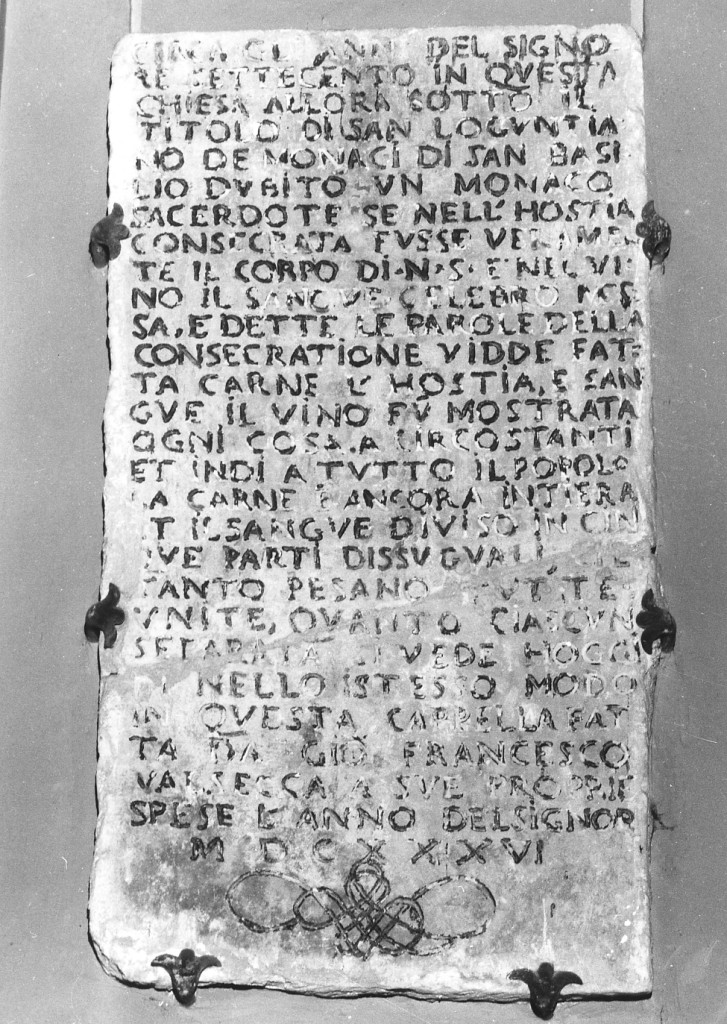 CIRCA GL' ANNI DEL SIGNO
RE SETTECENTO IN QVESTA
CHIESA ALLORA SOTTO IL
TITOLO DI SAN LOGVNTIA
NO DE MONACI DI SAN BASI
LIO DVBITÒ VN MONACO
SACERDOTE SE NELL'HOSTIA
CONSECRATA FVSSE VERAMEN
TE IL CORPO DI·N·S·E NEL VI
NO IL SANGVE CELEBRÒ MES
SA, E DETTE LE PAROLE DELLA
CONSECRATIONE VIDDE FAT=
TA CARNE L'HOSTIA, E SAN
GVE IL VINO FÙ MOSTRATA
OGNI COSA A CIRCOSTANTI
ET INDI A TVTTO IL POPOLO
LA CARNE È ANCORA INTIERA
ET IL SANGVE DIVISO IN CIN
QVE PARTI DISSVGVALI, CHE
TANTO PESANO TVTTE
VNITE, QVANTO CIASCVN
SEPARATA SI VEDE HOGGI
DI NELLO ISTESSO MODO
IN QVESTA CAPPELLA FAT
TA DA GIO FRANCESCO
VALSECCA A SVE PROPRIE
SPESE L'ANNO DEL SIGNOR